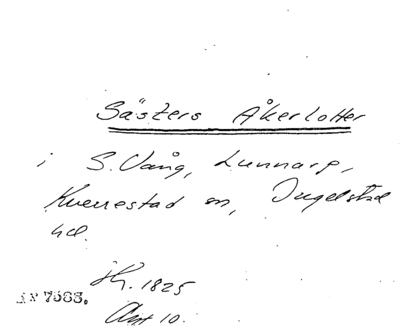 Sästers Åkerlotter
i S. Vång, Lunnarp,
Kverrestad sn, Ingelstad
hd.
1825
Akt 10.